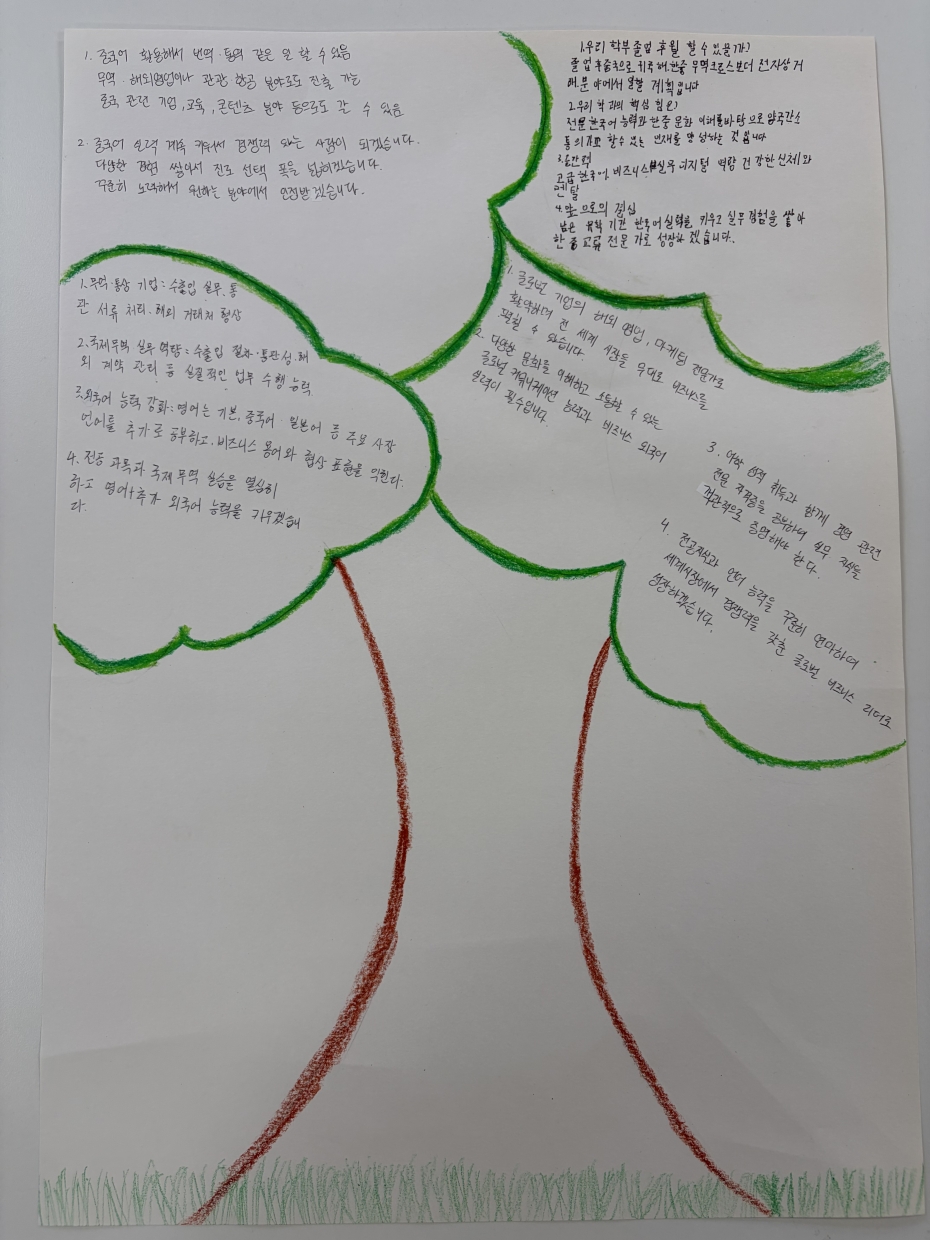 1. 중국어 활용해서 번역·통역 같은 일 할 수 있음
무역·해외영업이나 관광·항공 분야로도 진출 가능
중국 관련 기업, 교육, 콘텐츠 분야 등으로도 갈 수 있음
2. 중국어 실력 계속 키워서 경쟁력 있는 사람이 되겠습니다.
다양한 경험 쌓아서 진로 선택 폭을 넓히겠습니다.
꾸준히 노력해서 원하는 분야에서 인정받겠습니다.
1.우리 학부 졸업 후 뭘 할 수 있을까?
졸업 후 중국으로 귀국해.한중 무역크로스보더 전자상거
래.분야에서 일할 계획입니다
2.우리 학과의 핵심 힘은?
전문한국어 능력과 한중 문화 이해를바탕으로 양국간소
통의 할수 있는 인재를 양성하는 것입니다
3.
고급한국어.비즈니스 실무 디지털 역량 건강한신체와
멘탈
4.앞으로의 결심
남은 유학 기간 한국어실력을 키우고 실무경험을 쌓아
한중교류 전문가로 성장하겠습니다.
1.무역·통상 기업: 수출입 실무, 통
관 서류 처리, 해외 거래처 협상
2.국제무역 실무 역량: 수출입 절차·통관 해
외 계약 관리 등 실질적인 업무 수행 능력
3.외국어 능력 강화: 영어는 기본, 중국어·일본어 등 주요 시장
언어를 추가로 공부하고, 비즈니스 용어와 협상 표현을 익힌다.
4. 전공 과목과 국제무역 실습을 열심히
하고 영어+추가 외국어 능력을 키우겠습니
다.
1. 글로벌 기업의 해외 영업, 마케팅 전문가로
활약하며 전 세계 시장을 무대로 비즈니스를
펼칠 수 있습니다.
2. 다양한 문화를 이해하고 소통할 수 있는
글로벌 커뮤니케이션 능력과 비즈니스 외국어
실력이 필수입니다.
3. 어학 성적 취득과 함께 경영 관련
전문 자격증을 공부하여 실무 지식을
객관적으로 증명해야 한다.
4. 전공지식과 언어 능력을 꾸준히 연마하여
세계시장에서 경쟁력을 갖춘 글로벌 비즈니스 리더로
성장하겠습니다.